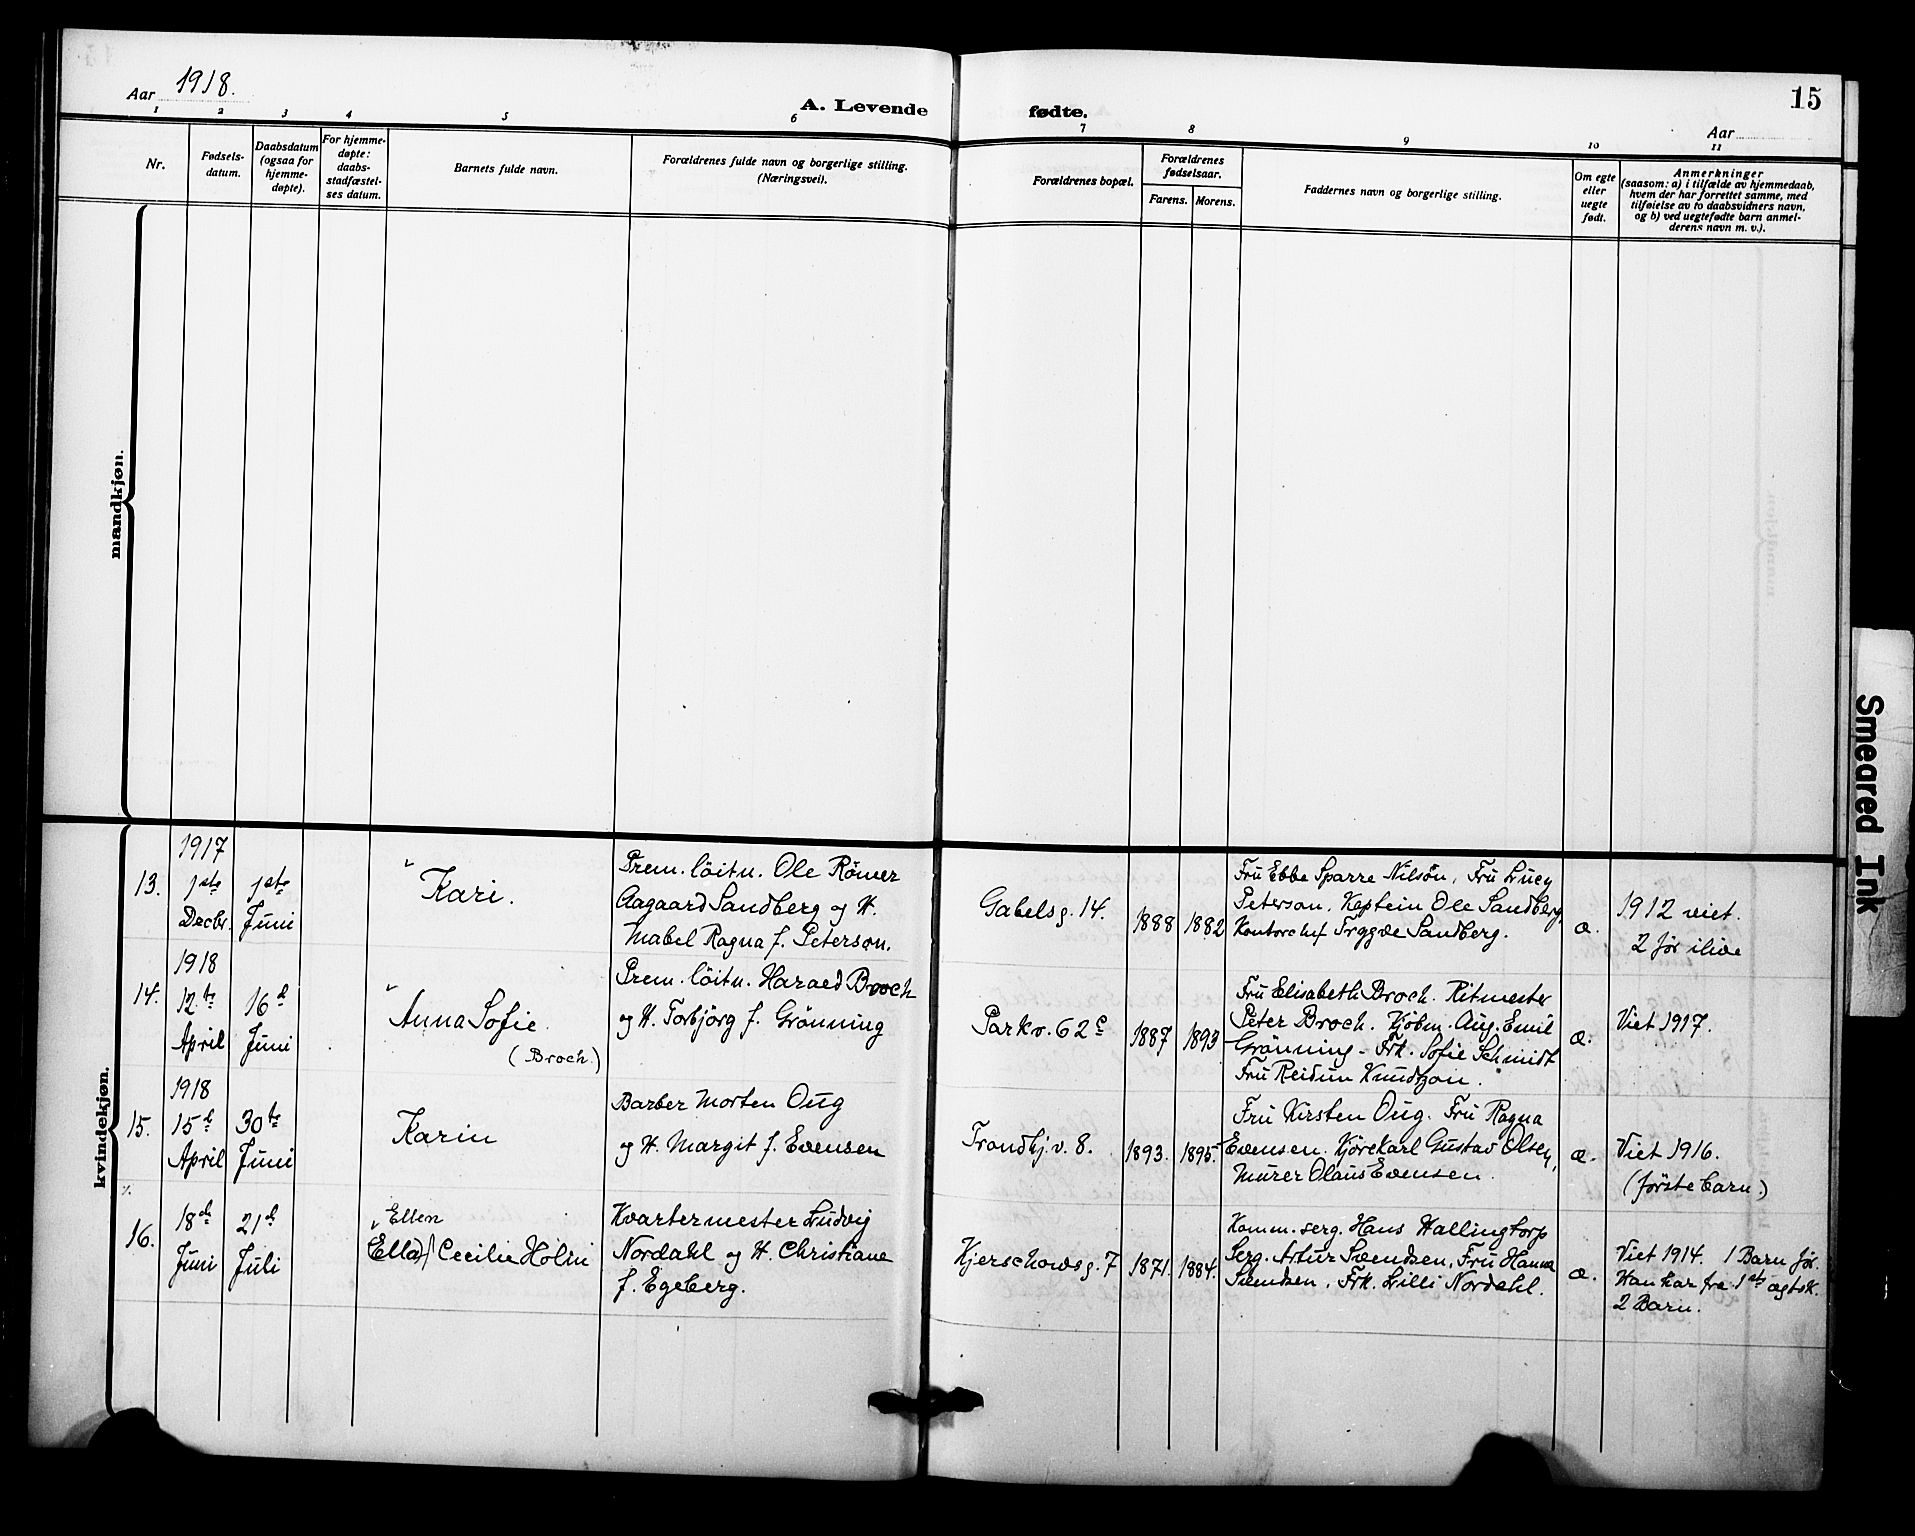 Aar 1918.
A. Levende fødte.
15
Aar
1 2 3 4 5 6 7 8 9 10 11
Nr.
Fødsels-
datum.
Daabsdatum
(ogsaa for
hjemme-
døpte).
For hjemme-
døpte:
daabs-
stadfæstel-
ses datum.
Barnets fulde navn.
Forældrenes fulde navn og borgerlige stilling.
(Næringsvei).
Forældrenes bopæl.
Forældrenes
fødselsaar.
Farens. Morens.
Faddernes navn og borgerlige stilling.
Om egte
eller
uegte
født.
Anmerkninger
(saasom: a) i tilfælde av hjemmedaab,
hvem der har forrettet samme, med
tilføielse av to daabsvidners navn,
og b) ved uegtefødte barn anmel-
derens navn m. v.).
mandkjøn.
kvindekjøn.
13.
1917
1ste
Decbr.
1ste
Juni
Kari.
Prem. löitn. Ole Römer
Aagaard Sandberg og H.
Mabel Ragna f. Peterson.
Gabelsg. 14.
1888
1882
Fru Ebbe Sparre Nilsön, Fru Lucy
Peterson. Kaptein Ole Sandberg,
Kontorchef Tryggve Sandberg.
æ.
1912 viet.
2 før ilive
14.
1918
12.te
April
16d
Juni
Anna Sofie.
(Broch.)
Prem. löitn. Harald Broch
og H. Torbjörg f. Grönning
Parkv. 62c
1887
1893
Fru Elisabeth Broch. Ritmester
Peter Broch. Kjöbm. Aug. Emil
Grönning - Frk. Sofie Schmidt
Fru Reidun Knudtzon.
æ.
Viet 1917.
15.
1918
15d
April
30te
Juni
Karin
Barber Morten Oug
og H. Margit f. Evensen
Trondhj. v. 8.
1893.
1895
Fru Kirsten Oug. Fru Ragna
Evensen. Kjörekarl Gustav Olsen,
Murer Olaus Evensen.
æ.
Viet 1916.
(förste barn.)
16.
18de
Juni
21d
Juli
Ellen
Ella Cecilie Holm
Kvartermester Ludvig
Nordahl og H. Christiane
f. Egeberg.
Kjerschowsg. 7
1871.
1884.
Komm. serg. Hans Hallingtorp
Serg. Artur Svendsen, Fru Hanna
Svendsen, Frk. Lilli Nordahl.
æ.
Viet 1914. 1 Barn før.
Han har fra 1ste ægtsk.
2 Barn.
Smeared Ink